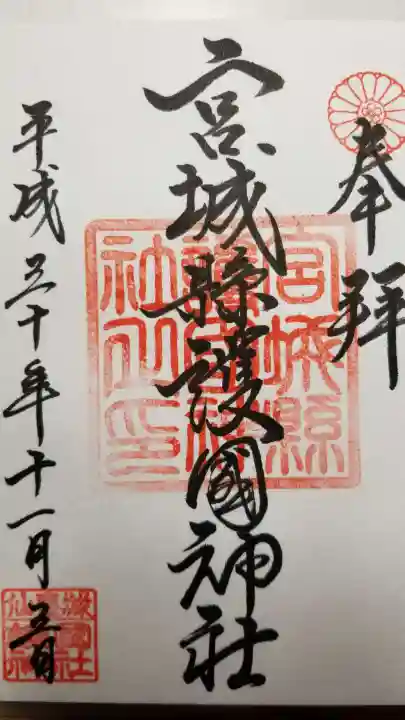 奉拜
宮城縣護國神社
宮城縣護國神社之印
平成三十年十一月三日